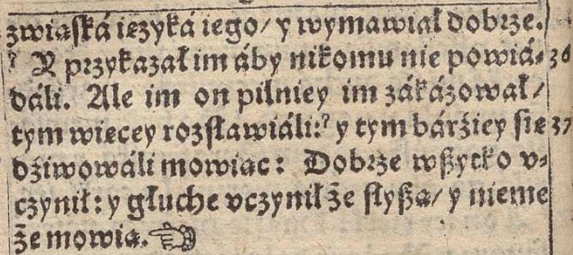 zwiąſká ięzyká iego/ y wymawiał dobrze.
? Y przykazał im áby nikomu nie powiá- 36
dáli. Ale im on pilniey im zákázował/
tym więcey rozſławiáli:? y tym bárźiey ſię 37
dźiwowáli mowiąc: Dobrze wßytko v-
czynił: y głuche vczynił że ſłyßą/ y nieme
że mowią. ☜